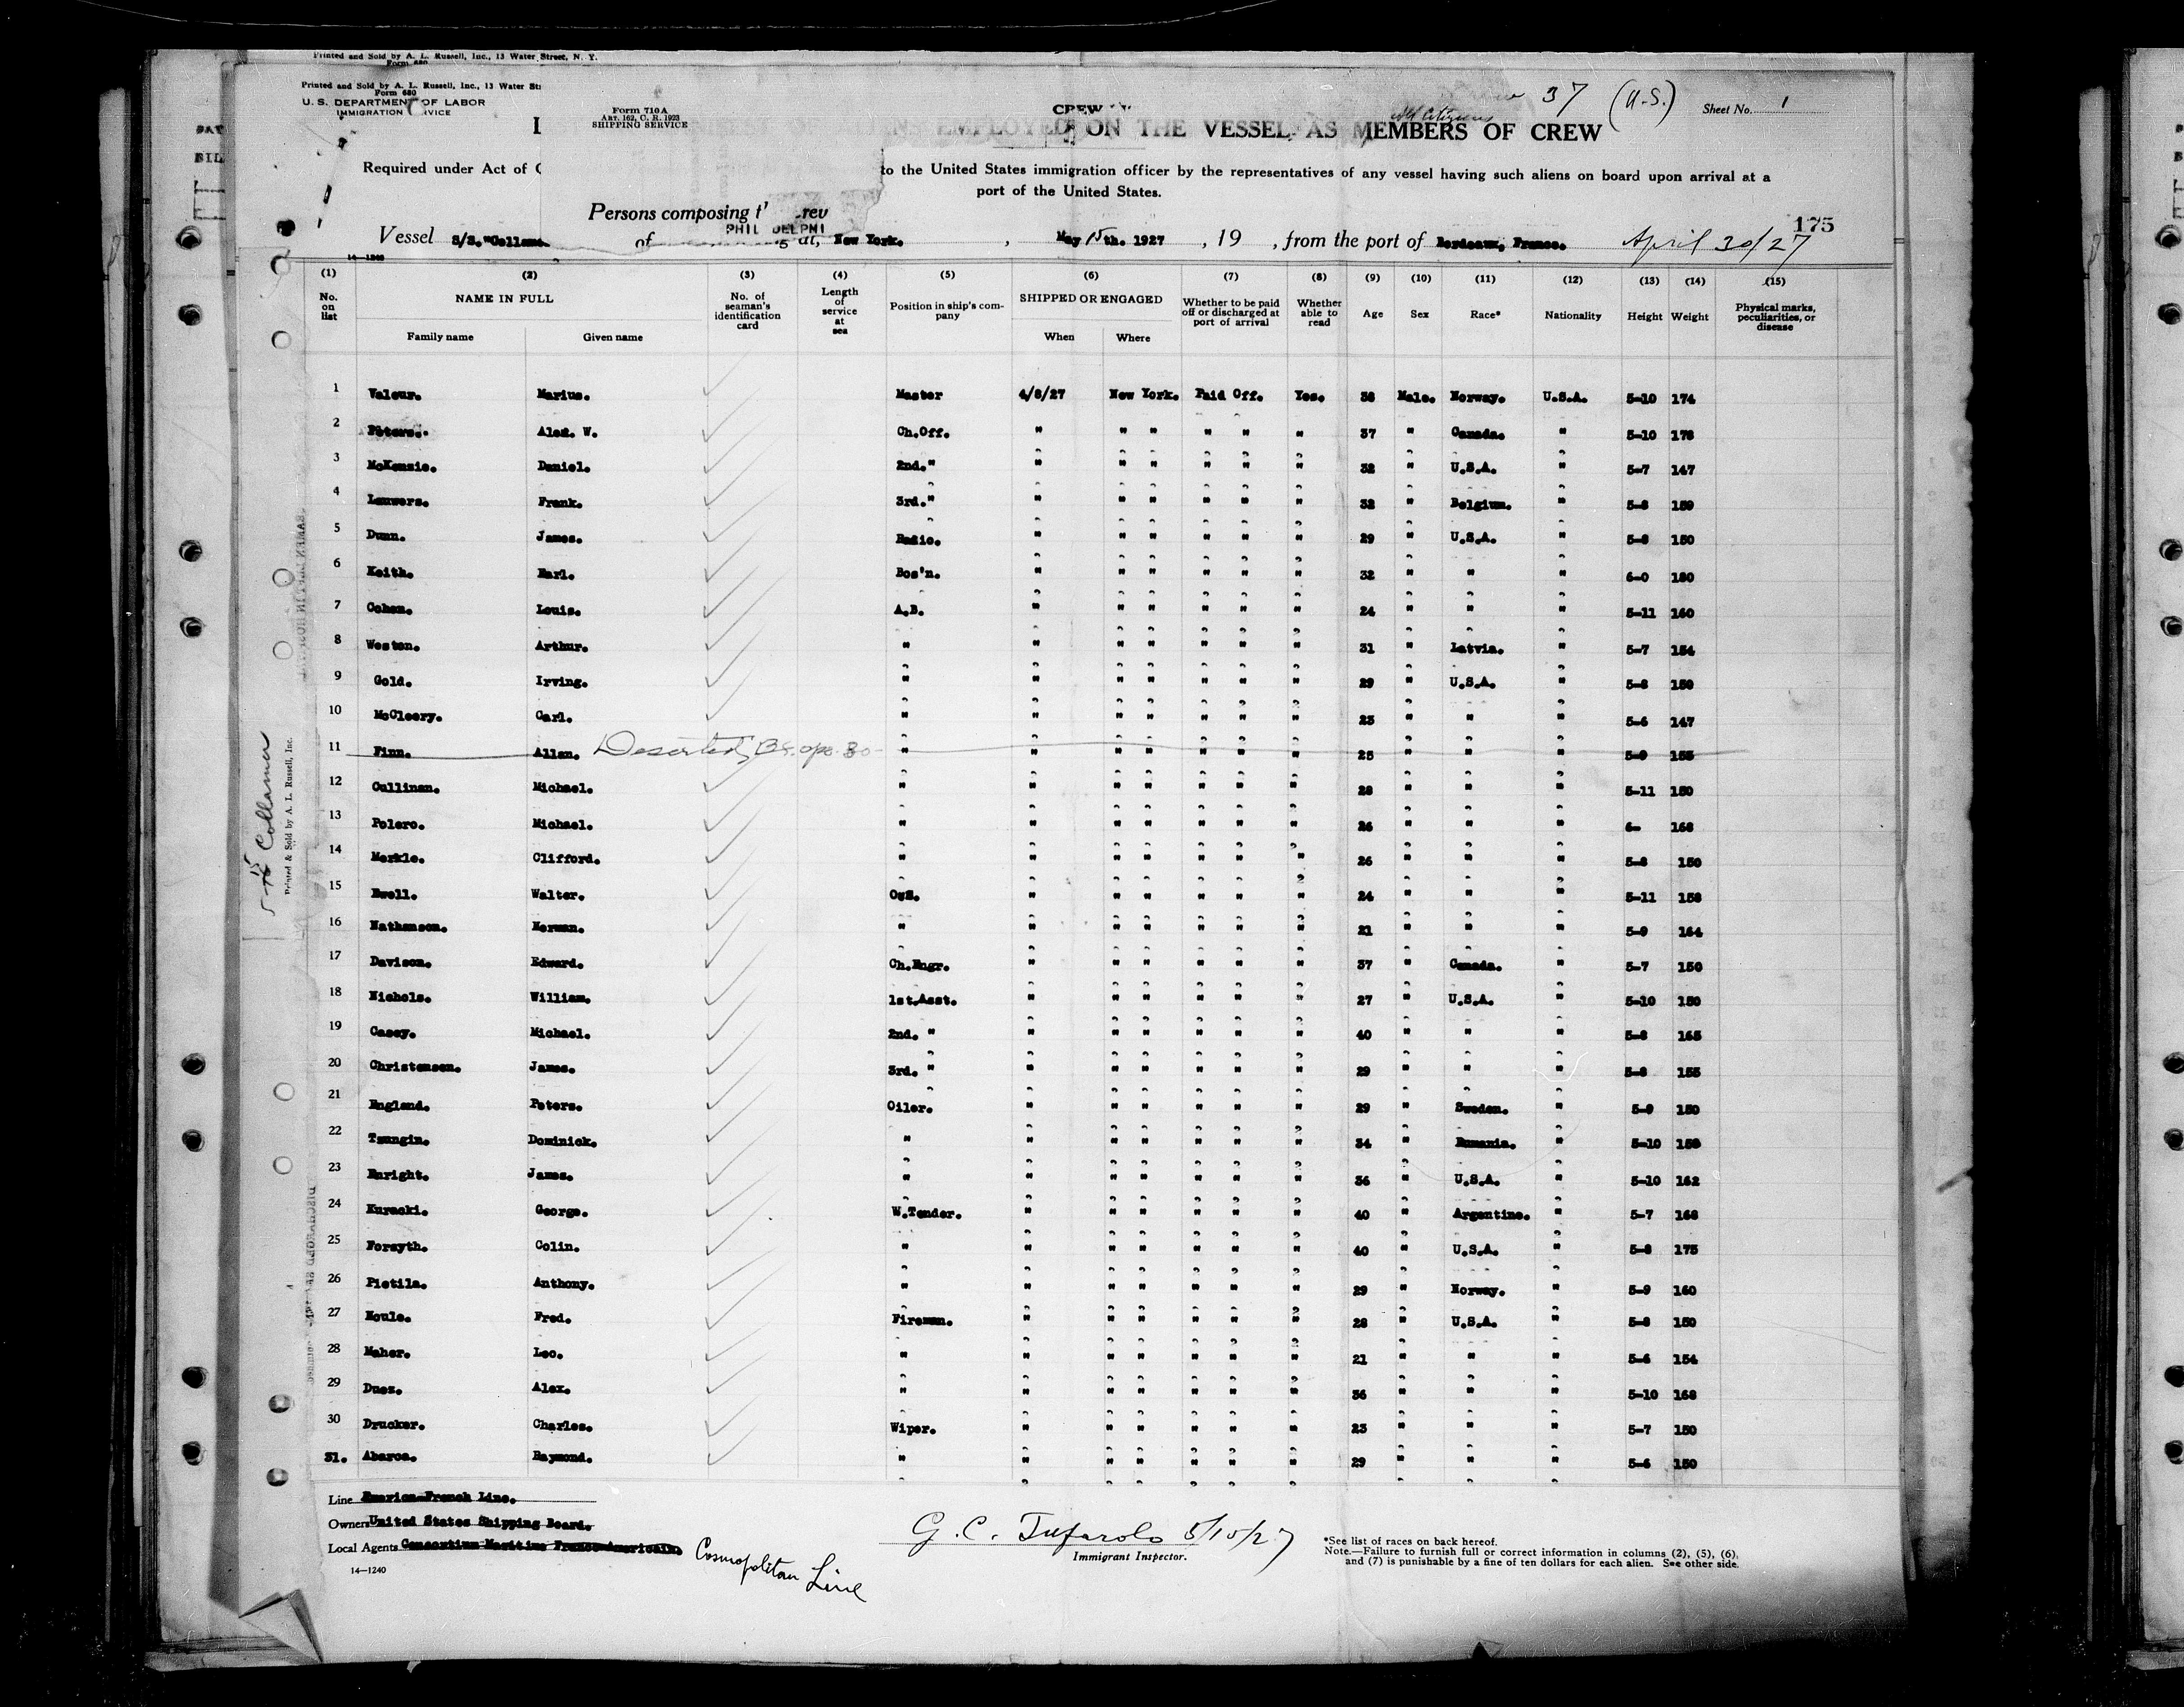 Printed and Sold by A. L. Russell, Inc., 13 Water Street, N. Y.
Form 680
Printed and Sold by A. L. Russell, Inc., 13 Water
Form 680
U. S. DEPARTMENT OF LABOR
IMMIGRATION
Form 710A
Art. 162, C. R. 1923
SHIPPING SERVICE
CREW
37 (U.S.)
Sheet No. 1
EMPLOYED ON THE VESSEL AS MEMBERS OF CREW
Required under Act of
to the United States immigration officer by the representatives of any vessel having such aliens on board upon arrival at a
port of the United States.
Persons composing
175
Vessel S/S. "Collamer of at, New York. , May 15th. 1927 , 19 , from the port of Bordeaux, France. April 30/27
14—1240
(1) (2) (3) (4) (5) (6) (7) (8) (9) (10) (11) (12) (13) (14) (15)
No. on list NAME IN FULL Family name Given name No. of seaman's identification card Length of service at sea Position in ship's company SHIPPED OR ENGAGED When Where Whether to be paid off or discharged at port of arrival Whether able to read Age Sex Race* Nationality Height Weight Physical marks, peculiarities, or disease
1 Valeur. Marius. Master 4/8/27 New York. Paid Off. Yes. 38 Male. Norway. U.S.A. 5-10 174
2 Peters. Alex. W. Ch.Off. " " " " " " 37 " Canada. " 5-10 178
3 McKenzie. Daniel. 2nd. " " " " " " " 32 " U.S.A. " 5-7 147
4 Lauwers. Frank. 3rd. " " " " " " " 32 " Belgium. " 5-8 159
5 Dunn. James. Radio. " " " " " " 29 " U.S.A. " 5-8 150
6 Keith. Earl. Bos'n. " " " " " " 32 " " " 6-0 180
7 Cohen. Louis. A.B. " " " " " " 24 " " " 5-11 160
8 Weston. Arthur. " " " " " " " 31 " Latvia. " 5-7 154
9 Gold. Irving. " " " " " " " 29 " U.S.A. " 5-8 150
10 McCleery. Carl. " " " " " " " 23 " " " 5-6 147
11 Finn. Allan. Deserted " " " " " " " 25 " " " 5-9 155
12 Cullinan. Michael. " " " " " " " 28 " " " 5-11 150
13 Polero. Michael. " " " " " " " 26 " " " 6- 168
14 Merkle. Clifford. " " " " " " " 26 " " " 5-8 150
15 Ewell. Walter. O.S. " " " " " " 24 " " " 5-11 158
16 Nathanson. Herman. " " " " " " " 21 " " " 5-9 164
17 Davison. Edward. Ch.Engr. " " " " " " 37 " Canada. " 5-7 150
18 Nichols. William. 1st.Asst. " " " " " " 27 " U.S.A. " 5-10 150
19 Casey. Michael. 2nd. " " " " " " " 40 " " " 5-8 165
20 Christensen. James. 3rd. " " " " " " " 29 " " " 5-8 155
21 England. Peters. Oiler. " " " " " " 29 " Sweden. " 5-9 150
22 Tsungin. Dominick. " " " " " " " 34 " Rumania. " 5-10 158
23 Enright. James. " " " " " " " 36 " U.S.A. " 5-10 162
24 Kuracki. George. W.Tender. " " " " " " 40 " Argentine. " 5-7 168
25 Forsyth. Colin. " " " " " " " 40 " U.S.A. " 5-8 175
26 Pietila. Anthony. " " " " " " " 29 " Norway. " 5-9 160
27 Moule. Fred. Fireman. " " " " " " 28 " U.S.A. " 5-8 150
28 Maher. Leo. " " " " " " " 21 " " " 5-6 154
29 Duez. Alex. " " " " " " " 36 " " " 5-10 168
30 Drucker. Charles. Wiper. " " " " " " 23 " " " 5-7 150
31. Abarca. Raymond. " " " " " " " 29 " " " 5-6 150
Line America French Line.
Owners United States Shipping Board.
Local Agents Consortium Maritime Franco-Americain.
Cosmopolitan Line
14—1240
G. C. Tufarolo 5/15/27
Immigrant Inspector.
*See list of races on back hereof.
Note.—Failure to furnish full or correct information in columns (2), (5), (6),
and (7) is punishable by a fine of ten dollars for each alien. See other side.
5-15 Collamer
Printed & Sold by A. L. Russell, Inc.